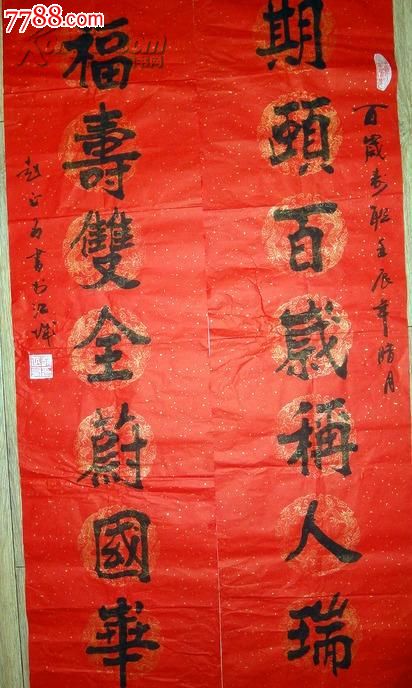 7788.com
期頤百歲稱人瑞
百歲壽聯壬辰年腊月
福壽雙全蔚國華
書於江城